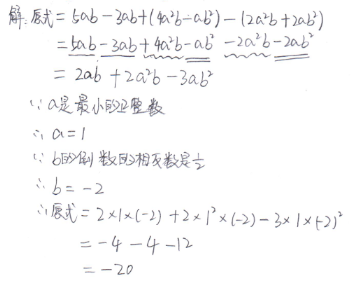 解:原式=5ab-3ab+(4a²b-ab²)-(2a²b+2ab²)
=5ab-3ab+4a²b-ab²-2a²b-2ab²
=2ab+2a²b-3ab²
∵a是最小的正整数
∴a=1
∵b的倒数的相反数是½
∴b=-2
∴原式=2×1×(-2)+2×1²×(-2)-3×1×(-2)²
=-4-4-12
=-20